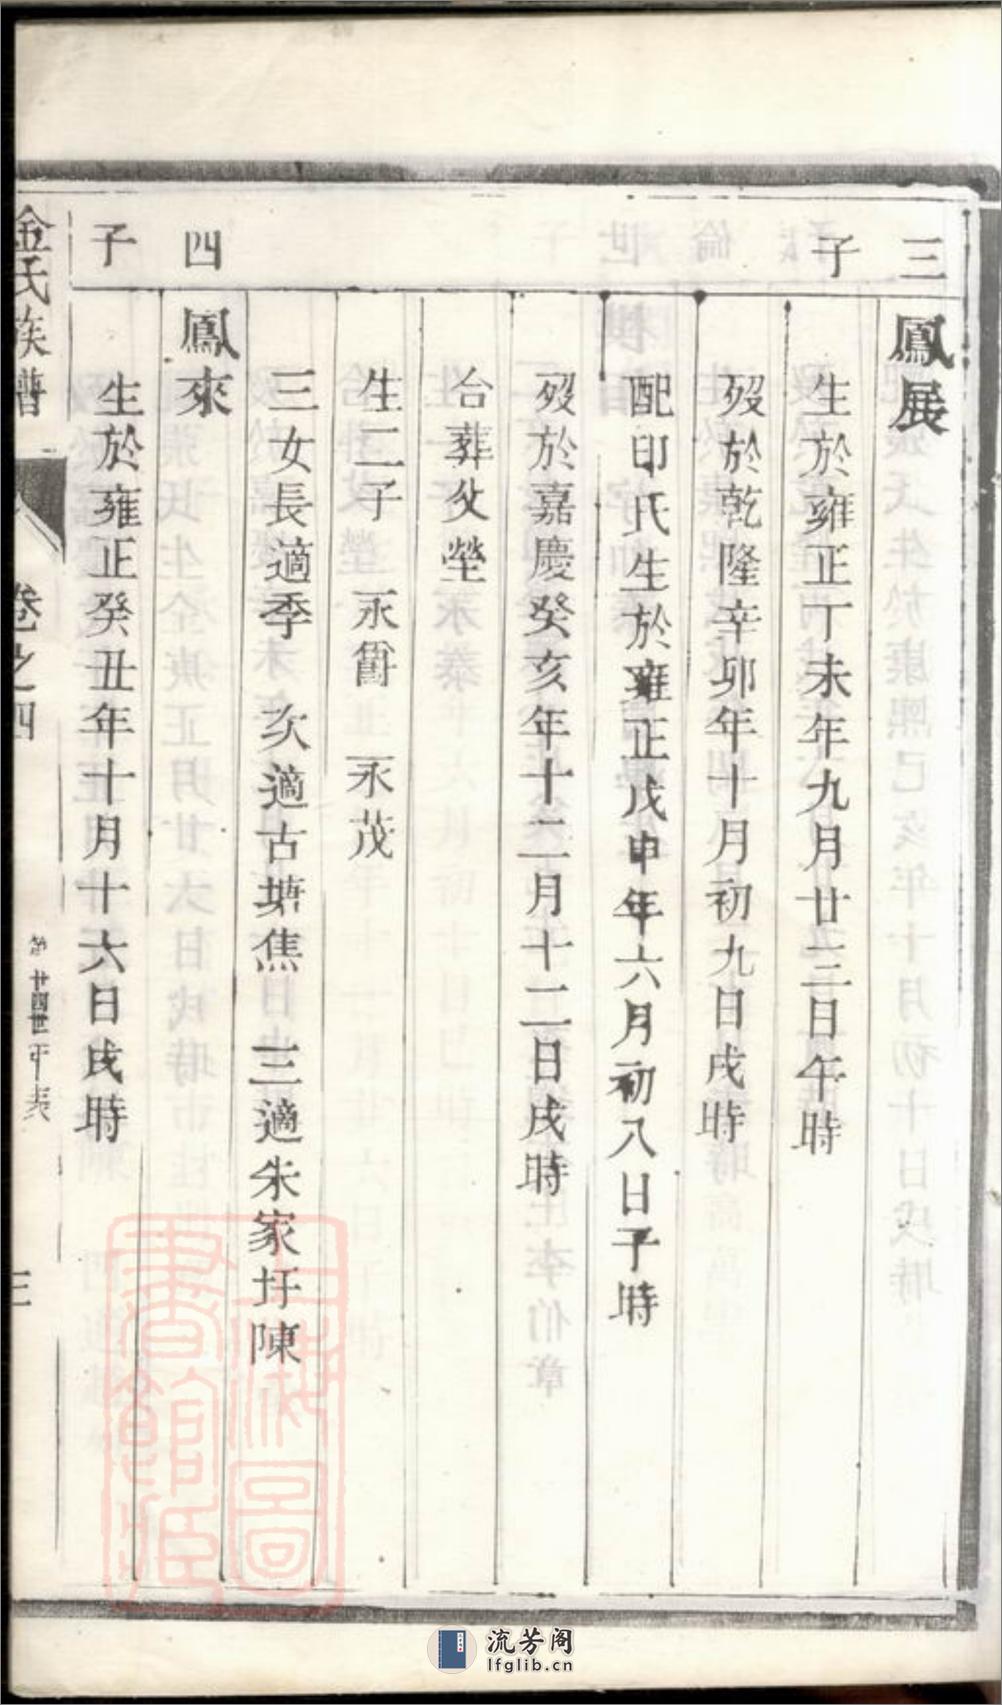 三子
鳳展
生於雍正丁未年九月廿三日午時
歿於乾隆辛卯年十月初九日戌時
配印氏生於雍正戊申年六月初八日子時
歿於嘉慶癸亥年十二月十二日戌時
合葬父塋
生二子 永爵 永茂
三女長適季 次適古塘焦 三適朱家圩陳
四子
鳳來
生於雍正癸丑年十月十六日戌時
金氏族譜 卷之四 第廿四世 表 三
上海圖書館藏
流芳阁
lfglib.cn